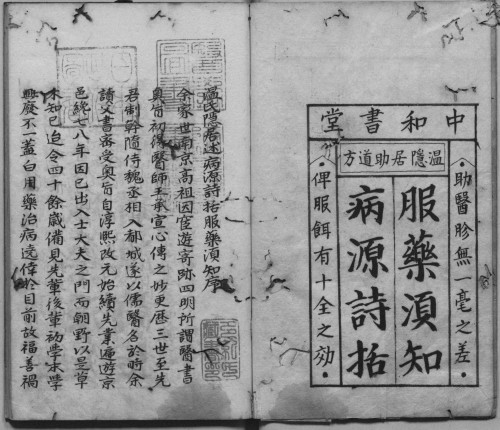 中和書堂
温隱居助道方
助醫眕無一毫之差
服藥須知
病源詩括
俾服餌有十全之効
温氏隱居述病源詩括服藥須知序
余家世南京高祖因宦遊寄跡四明所謂醫書
奥旨初得醫師王承宣心傳之妙更歷三世至先
君制幹隨侍魏丞相入都城遂以儒醫名於時余
讀父書審受奥旨自淳熙改元始續先業遍遊京
邑終七八年因已出入士大夫之門而朝野以是草
木知已迨今四十餘歳備見先輩後輩初學未學
興廢不一蓋白用藥治病遠偉於目前故福善禍